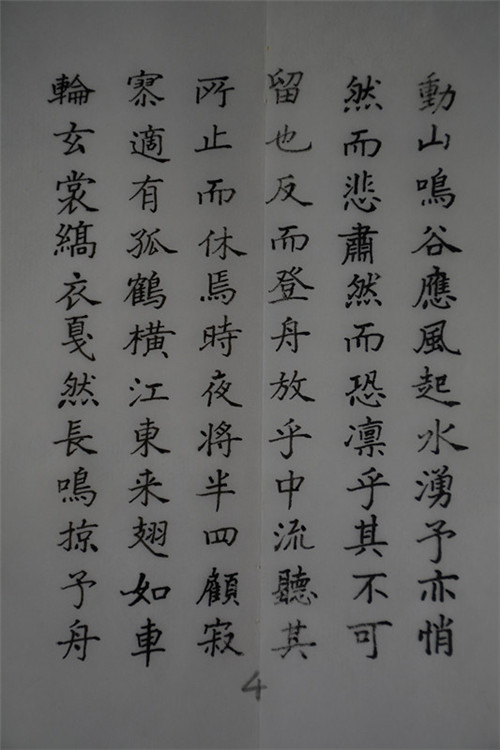 動山鳴谷應風起水湧予亦悄
然而悲肅然而恐凛乎其不可
留也反而登舟放乎中流聽其
所止而休焉時夜將半四顧寂
寥適有孤鶴橫江東来翅如車
輪玄裳縞衣戛然長鳴掠予舟
4